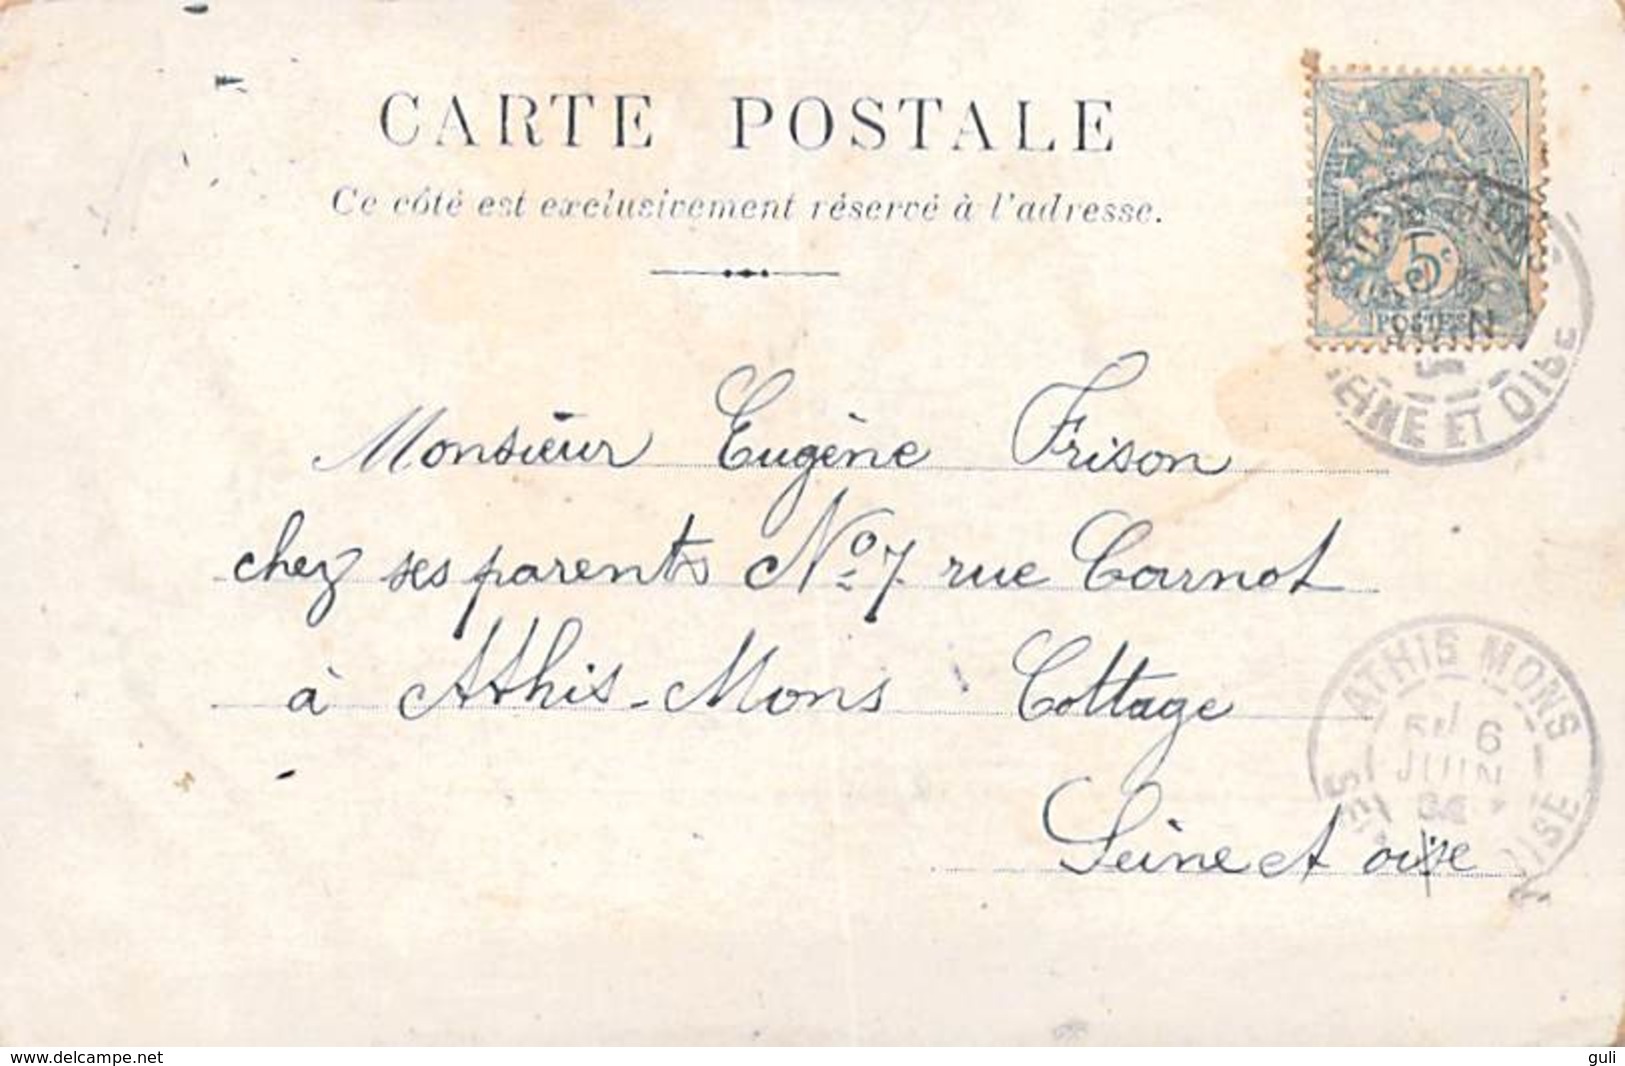 CARTE POSTALE
Ce côté est exclusivement réservé à l'adresse.
5c
POSTES
SEINE ET OISE
Monsieur Eugène Frison
chez ses parents No 7 rue Carnot
à Athis-Mons Cottage
Seine et oise
ATHIS MONS
6
JUIN
OISE
www.delcampe.net
guli